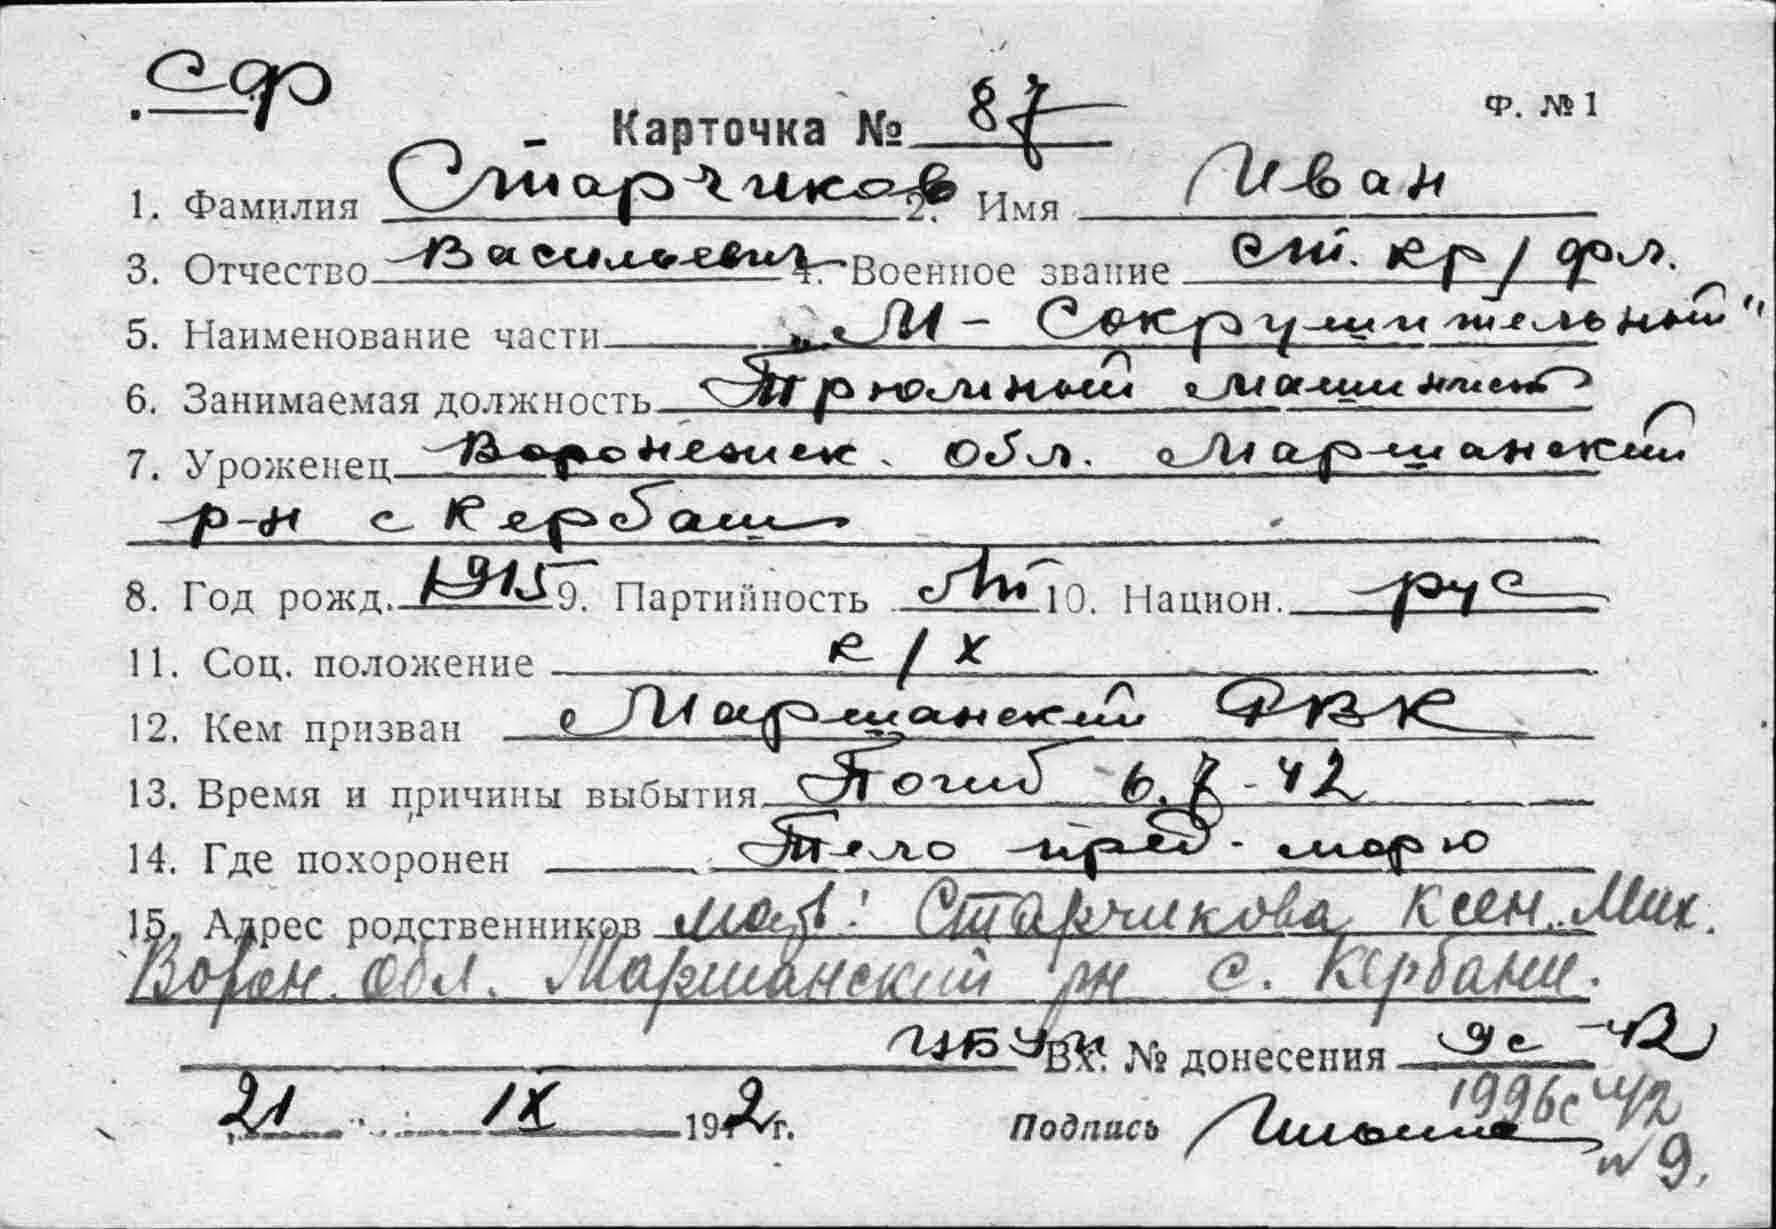 СФ
Ф. № 1
Карточка № 87
1. Фамилия Старчиков 2. Имя Иван
3. Отчество Васильевич 4. Военное звание ст. кр/фл.
5. Наименование части „М - Сокрушительный"
6. Занимаемая должность Трюмный машинист
7. Уроженец Воронежск. обл. Маршанский
р-н с Кербаш
8. Год рожд. 1915 9. Партийность 10. Национ. рус
11. Соц. положение к/х
12. Кем призван Маршанский РВК
13. Время и причины выбытия Погиб 6.7-42
14. Где похоронен Тело пред. морю
15. Адрес родственников мать: Старчикова Ксен. Мих.
Ворон. обл. Маршанский рн с. Кербаш.
Вх. № донесения 9с -42
1996с 42
21 IX 1942 г. Подпись
№9.